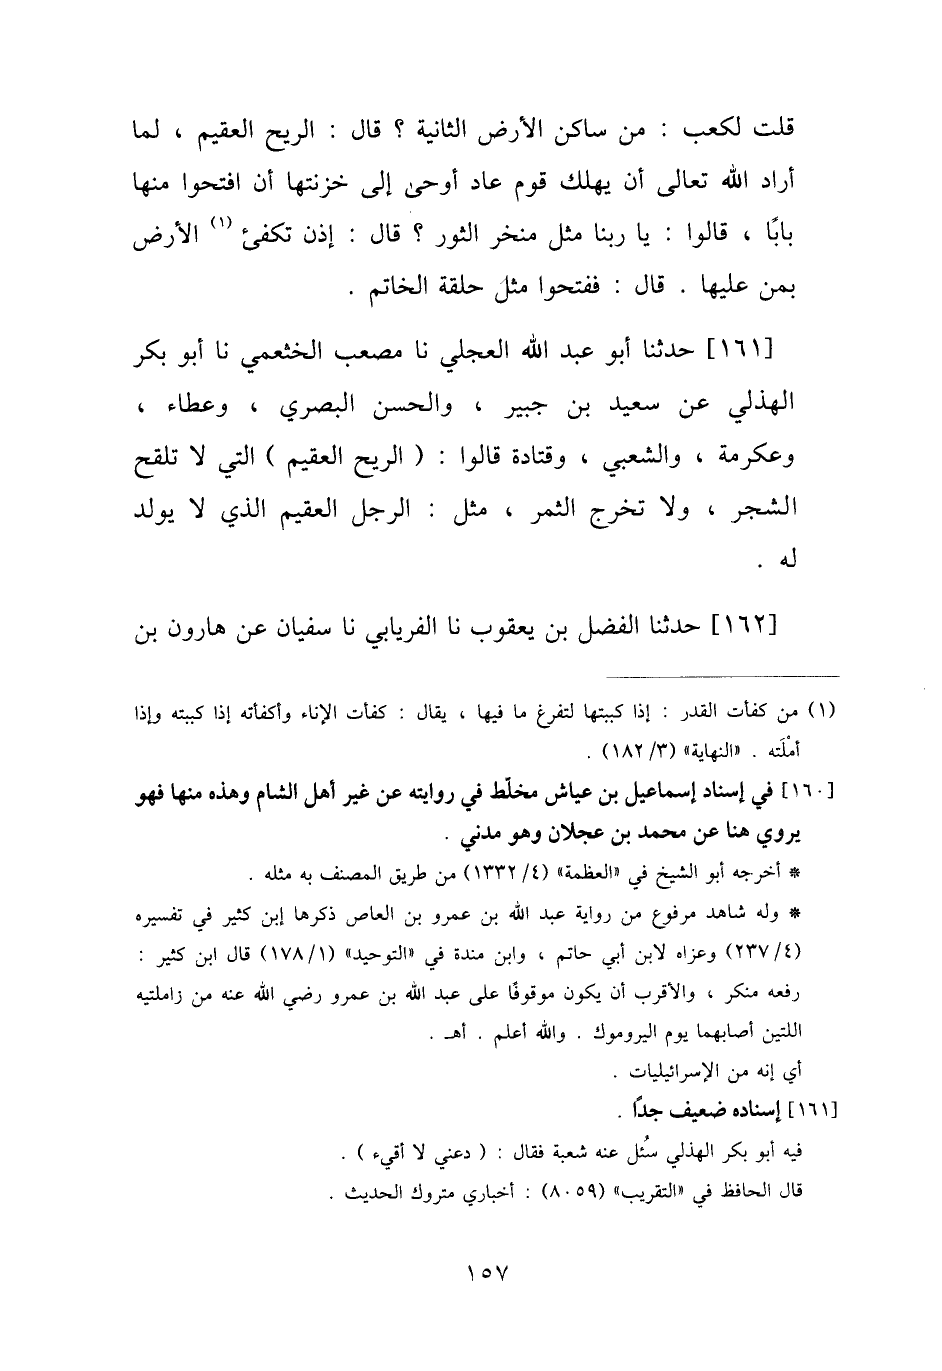 قلت لكعب : من ساكن الأرض الثانية ؟ قال : الريح العقيم ، لما
أراد الله تعالى أن يهلك قوم عاد أوحى إلى خزنتها أن افتحوا منها
بابًا ، قالوا : يا ربنا مثل منخر الثور ؟ قال : إذن تكفئ (١) الأرض
بمن عليها . قال : ففتحوا مثل حلقة الخاتم .
[١٦١] حدثنا أبو عبد الله العجلي نا مصعب الخثعمي نا أبو بكر
الهذلي عن سعيد بن جبير ، والحسن البصري ، وعطاء ،
وعكرمة ، والشعبي ، وقتادة قالوا : ( الريح العقيم ) التي لا تلقح
الشجر ، ولا تخرج الثمر ، مثل : الرجل العقيم الذي لا يولد
له .
[١٦٢] حدثنا الفضل بن يعقوب نا الفريابي نا سفيان عن هارون بن
(١) من كفأت القدر : إذا كببتها لتفرغ ما فيها ، يقال : كفأت الإناء وأكفأته إذا كببته وإذا
أملْته . «النهاية» (٣/ ١٨٢) .
[١٦٠] في إسناد إسماعيل بن عياش مخلّط في روايته عن غير أهل الشام وهذه منها فهو
يروي هنا عن محمد بن عجلان وهو مدني .
* أخرجه أبو الشيخ في «العظمة» (٤/ ١٣٣٢) من طريق المصنف به مثله .
* وله شاهد مرفوع من رواية عبد الله بن عمرو بن العاص ذكرها إبن كثير في تفسيره
(٤/ ٢٣٧) وعزاه لابن أبي حاتم ، وابن مندة في «التوحيد» (١/ ١٧٨) قال ابن كثير :
رفعه منكر ، والأقرب أن يكون موقوفًا على عبد الله بن عمرو رضي الله عنه من زاملتيه
اللتين أصابهما يوم اليروموك . والله أعلم . أهـ .
أي إنه من الإسرائيليات .
[١٦١] إسناده ضعيف جدًا .
فيه أبو بكر الهذلي سُئل عنه شعبة فقال : ( دعني لا أقيء ) .
قال الحافظ في «التقريب» (٨٠٥٩) : أخباري متروك الحديث .
١٥٧